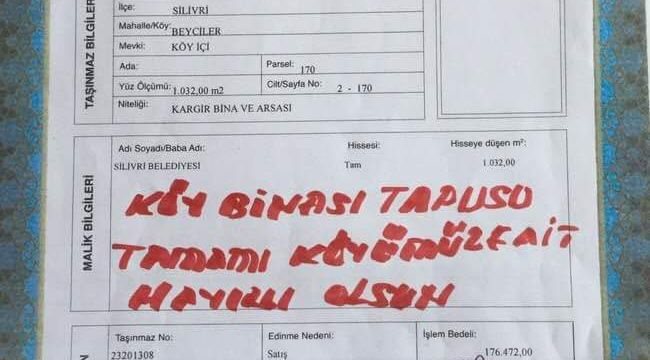 İlçe: SİLİVRİ
Mahalle/Köy: BEYCİLER
Mevki: KÖY İÇİ
Ada: Parsel: 170
Yüz Ölçümü: 1.032,00 m2 Cilt/Sayfa No: 2 - 170
Niteliği: KARGİR BİNA VE ARSASI
TAŞINMAZ BİLGİLERİ
Adı Soyadı/Baba Adı: Hissesi: Hisseye düşen m²:
SİLİVRİ BELEDİYESİ Tam 1.032,00
MALİK BİLGİLERİ
KÖY BİNASI TAPUSU
TAMAMI KÖYÜMÜZE AİT
HAYIRLI OLSUN
Taşınmaz No: Edinme Nedeni: İşlem Bedeli:
23201308 Satış 176.472,00